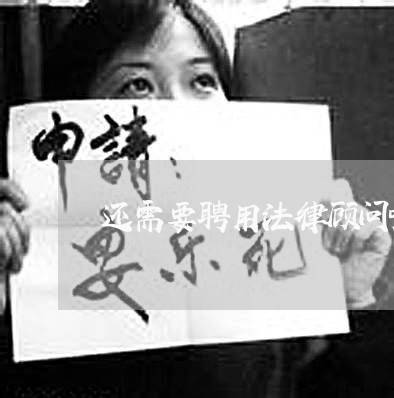 申請：
还需要聘用法律顾问
安乐死